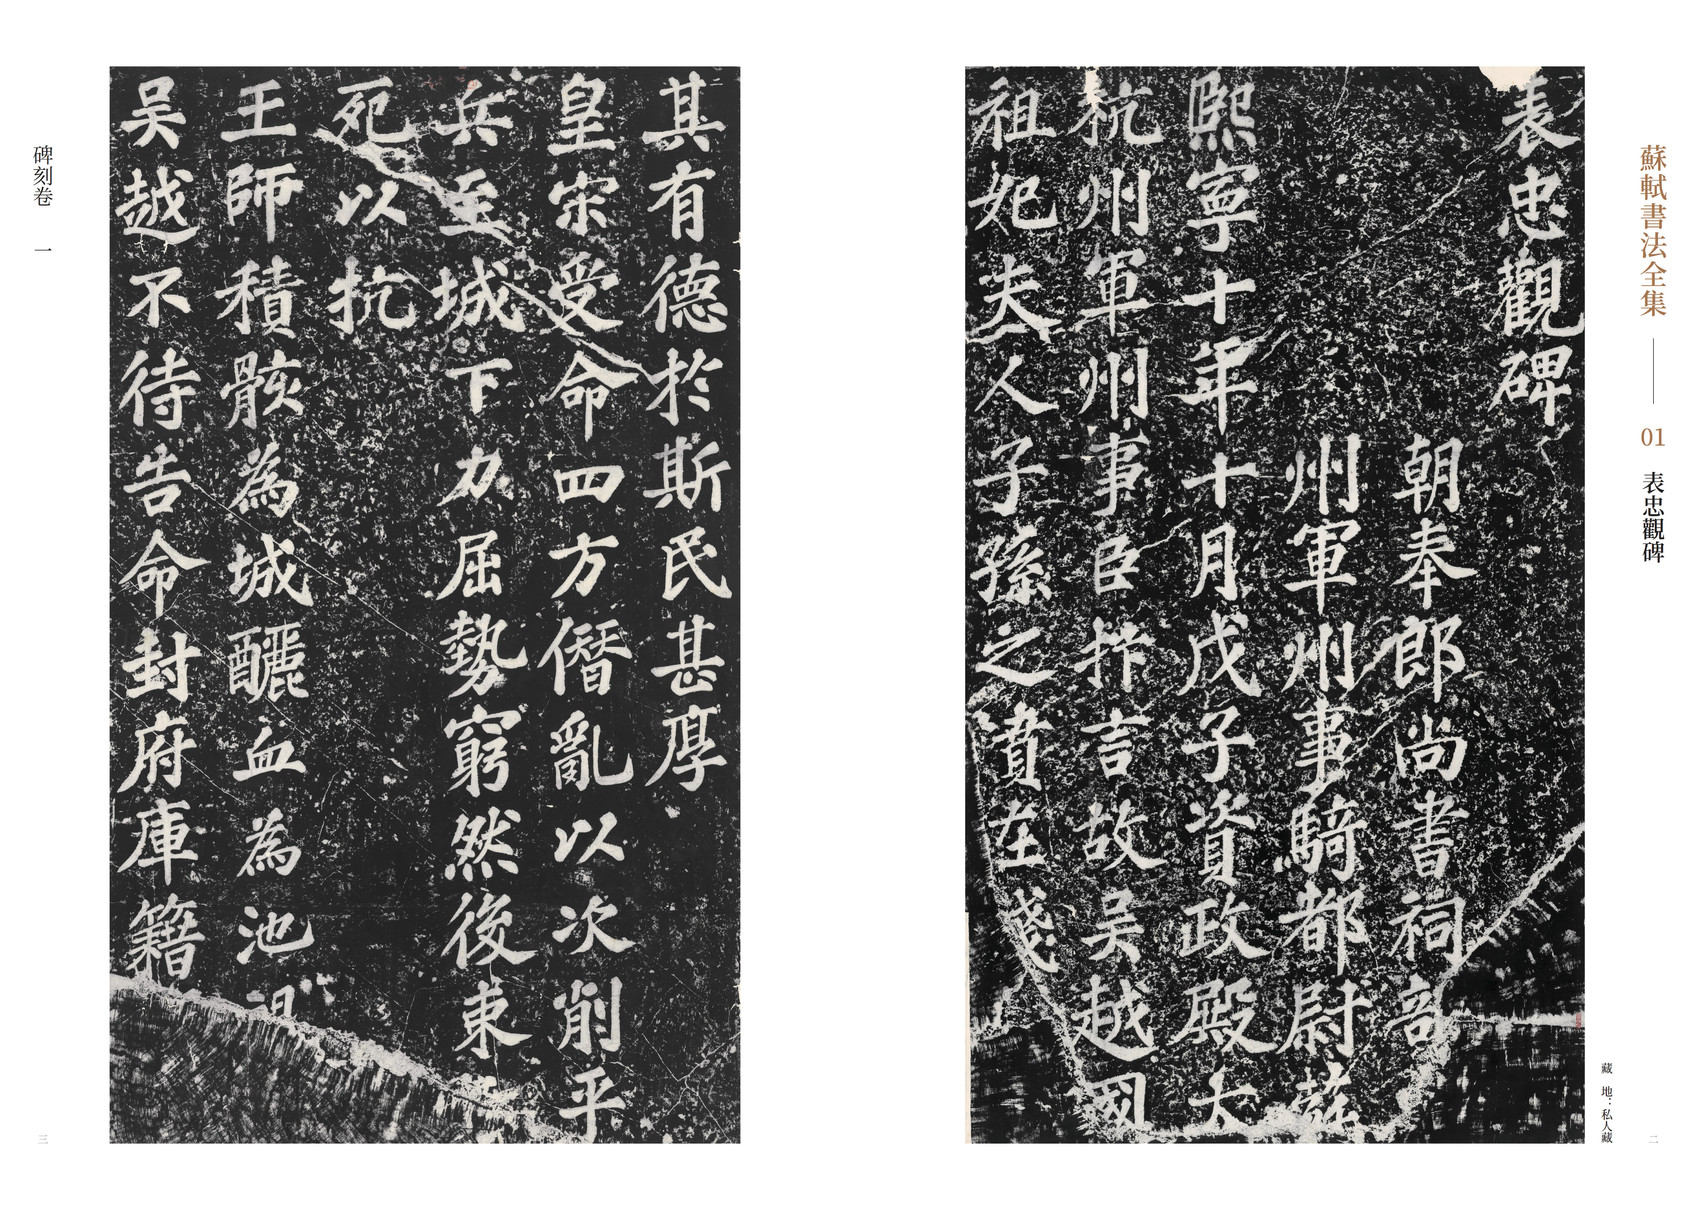 蘇軾書法全集 —— 01 表忠觀碑
藏 地：私人藏
二
表忠觀碑
朝奉郎尚書祠部
州軍州事騎都尉蘇
熙寧十年十月戊子資政殿大
杭州軍州事臣抃言故吳越國
祖妣夫人子孫之墳在錢
其有德於斯民甚厚
皇宋受命四方僭亂以次削平
兵至城下力屈勢窮然後束
死以抗
王師積骸為城釃血為池
吳越不待告命封府庫籍
碑刻卷 一
三